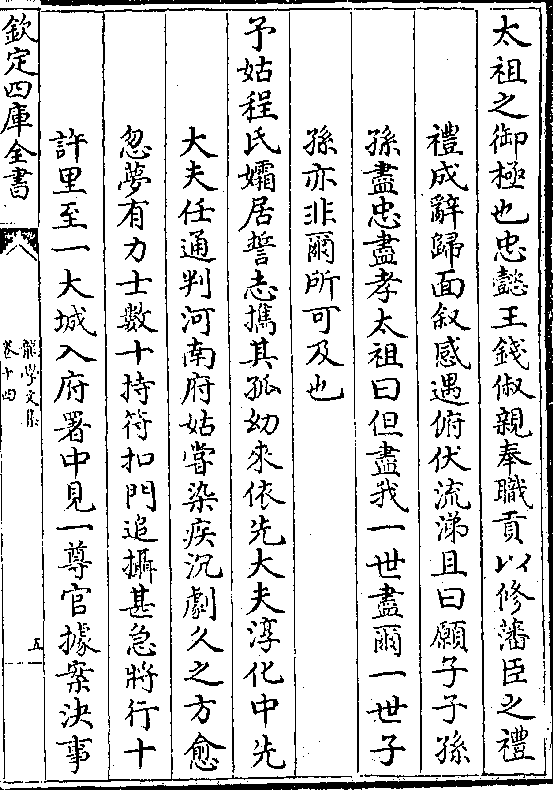 太祖之御極也忠懿王錢俶親奉職貢以修藩臣之禮
禮成辭歸面叙感遇俯伏流涕且曰願子子孫
孫盡忠盡孝太祖曰但盡我一世盡爾一世子
孫亦非爾所可及也
予姑程氏孀居誓志攜其孤幼來依先大夫淳化中先
大夫任通判河南府姑嘗染疾沉劇久之方愈
忽夢有力士數十持符扣門追攝甚急將行十
許里至一大城入府署中見一尊官據案決事
欽定四庫全書
龍學文集
卷十四
五